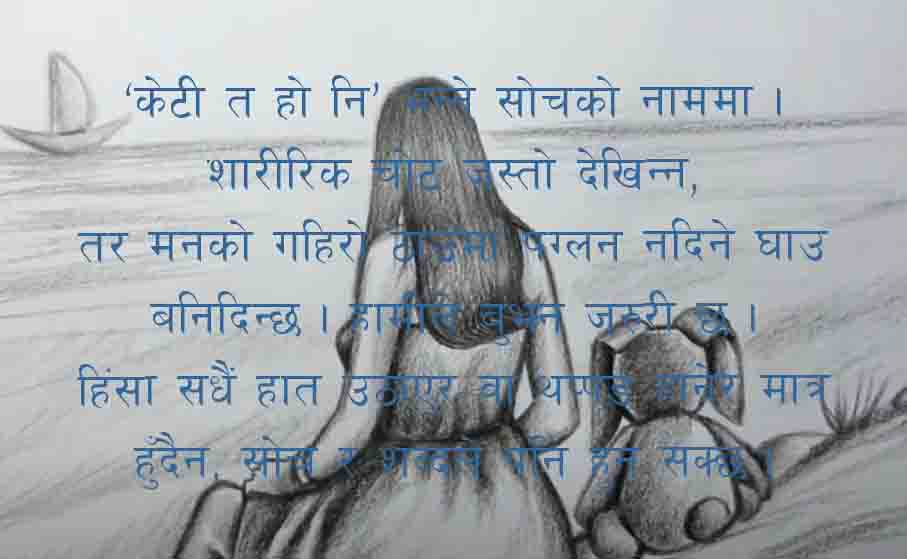 ‘केटी त हो नि’ भन्ने सोचको नाममा ।
शारीरिक चोट जस्तो देखिन्न,
तर मनको गहिरो ठाउँमा पग्लन नदिने घाउ
बनिदिन्छ । हामीले बुझ्न जरुरी छ ।
हिंसा सधैं हात उठाएर वा थप्पड हानेर मात्र
हुँदैन, सोच र शब्दले पनि हुन सक्छ ।